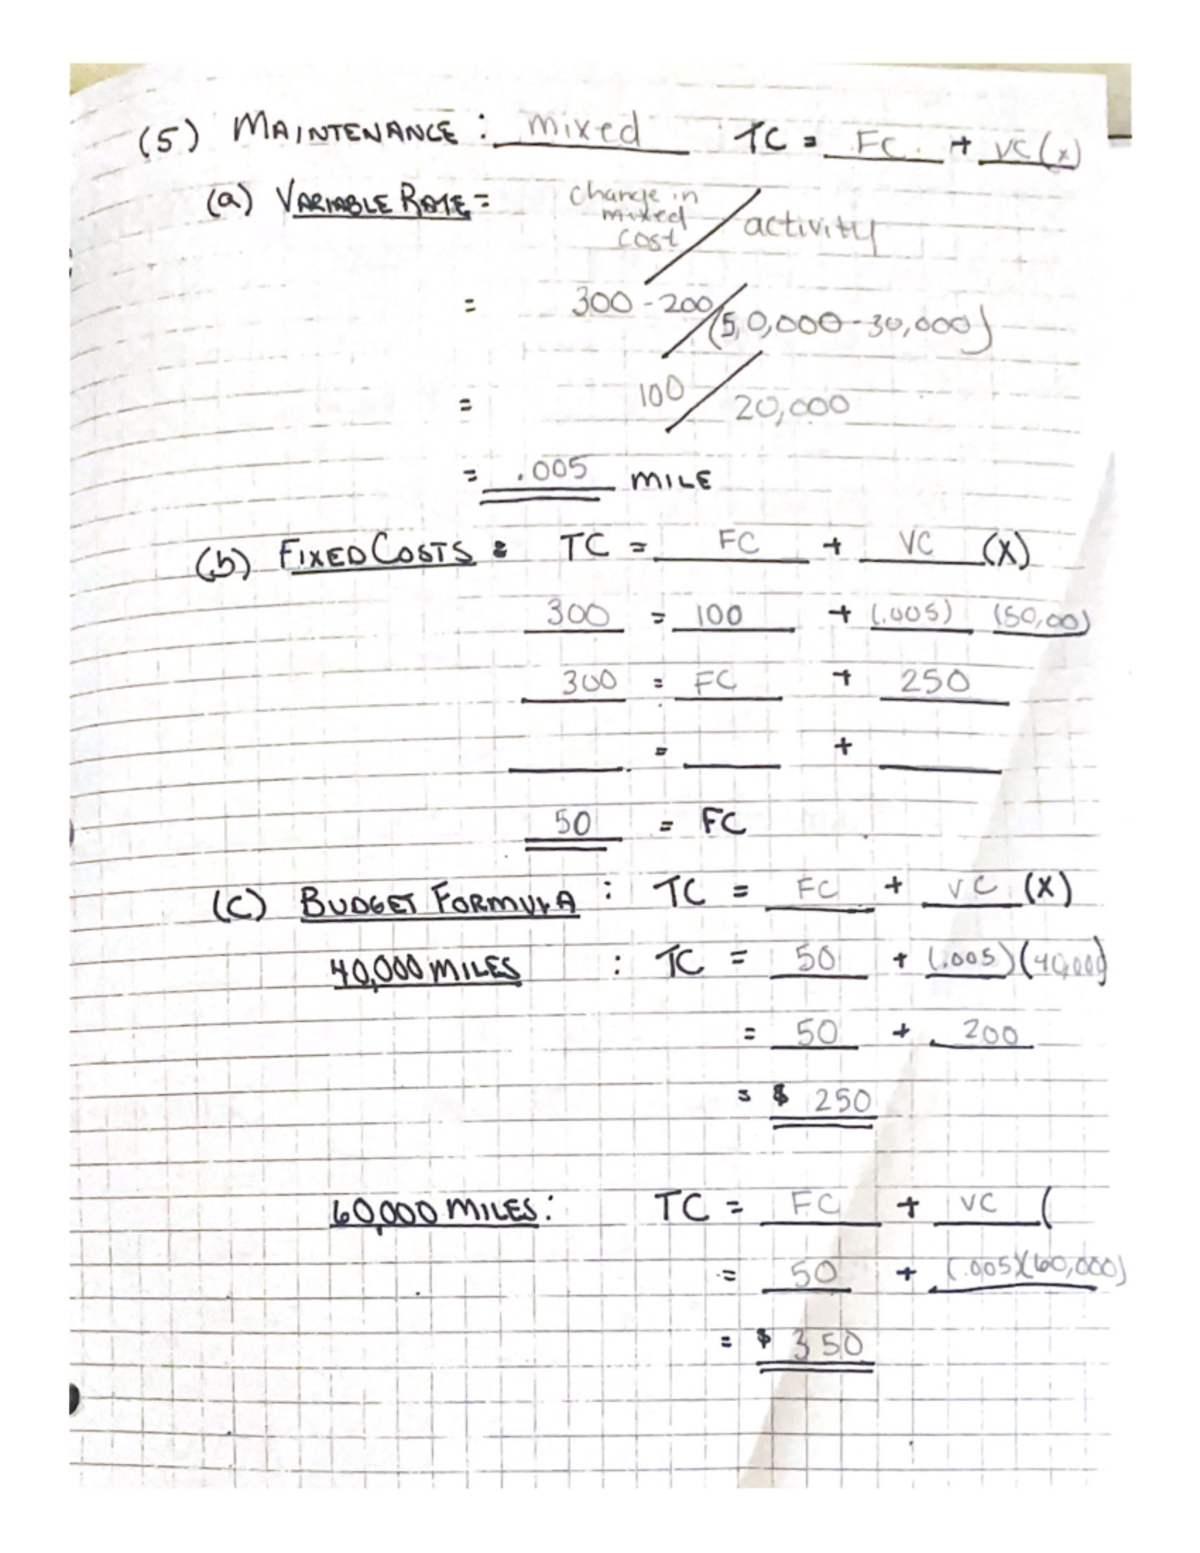 (5) MAINTENANCE : mixed TC = FC + VC (x)
(a) VARIABLE RATE = change in mixed cost / activity
= 300 - 200 / (50,000 - 30,000)
= 100 / 20,000
= .005 MILE
(b) FIXED COSTS : TC = FC + VC (X)
300 = 100 + (.005) (50,00)
300 = FC + 250
= +
50 = FC
(C) BUDGET FORMULA : TC = FC + VC (X)
40,000 MILES : TC = 50 + (.005)(40,000)
= 50 + 200
= $ 250
60,000 MILES : TC = FC + VC (
= 50 + (.005)(60,000)
= $ 350